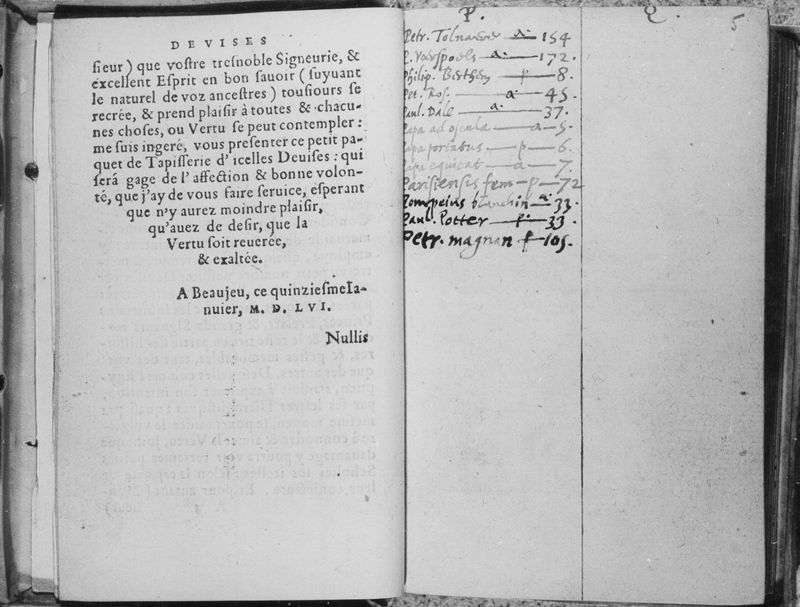 DEVISES
sieur) que vostre tresnoble Signeurie, &
excellent Esprit en bon sauoir (suyuant
le naturel de voz ancestres) tousiours se
recrée, & prend plaisir à toutes & chacu-
nes choses, ou Vertu se peut contempler:
me suis ingeré, vous presenter ce petit pa-
quet de Tapisserie d'icelles Deuises: qui
será gage de l'affection & bonne volon-
té, que j'ay de vous faire seruice, esperant
que n'y aurez moindre plaisir,
qu'auez de desir, que la
Vertu soit reuerée,
& exaltée.
A Beaujeu, ce quinziesme Ia-
nuier, M. D. LVI.
Nullis
P.
Petr. a. 154
P. a. 172.
Philip. p 8.
Pet. Ros. a 45.
Paul. Dale a. 37.
Papa ad oscula a 5.
Papa portatus p 6.
Papa equitat a 7.
Parisiensis fem p 72
Pompeius blanchin a. 33.
Paul. Potter f. 33.
Petr. magnan f 105.
Q.
5